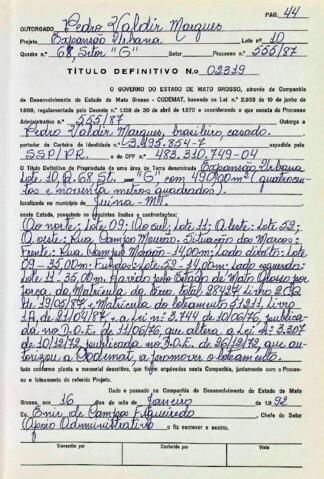 PAG. 44
OUTORGADO Pedro Valdir Marques
Projeto Expansão Urbana Lote nº 10
Quadra n.º 68, Setor "G" Processo nº 555/87
TÍTULO DEFINITIVO N.o 02319
O GOVERNO DO ESTADO DE MATO GROSSO, através da Companhia
de Desenvolvimento do Estado de Mato Grosso - CODEMAT, com base na Lei n.º 2.933 de 10 de junho de
1969, regulamentada pelo Decreto n.º 1.138 de 30 de abril de 1970 e considerando o que consta do Processo
Administrativo n.º 555/87 Outorga a
Pedro Valdir Marques, brasileiro, casado.
portador da Carteira de Identidade n.º 3.495.854-7 expedida pela
SSP/PR e do CPF n.º 483.310.749-04
O Título Definitivo de Propriedade de uma área de Terra denominada Expansão Urbana
Lote 10, Q. 68, St. "G" com 490,00m² (quatrocen
tos e noventa metros quadrados).
localizada no município de Juína-MT.
neste Estado, possuindo os seguintes limites e confrontações:
Ao norte: Lote 09; Ao sul: Lote 11; A leste: Lote 52;
A oeste: Rua Campo Mourão. Situação dos Marcos:
Frente: Rua Campo Mourão - 14,00m; Lado direito: Lote
09 - 35,00m; Fundos: Lote 52 - 14,00m; Lado esquerdo:
Lote 11 - 35,00m. Havido pelo Estado de Mato Grosso por
força da Matrícula da área total 28427, livro 2
de 19/05/87 e Matrícula do loteamento 51211, livro
de 21/04/87 e a Lei nº 3.744 de 10/06/76, publica-
da no D.O.E. de 11/06/76, que altera a Lei nº 3.307
de 10/12/72, publicada no D.O.E. de 26/12/72, que au-
torizou a Codemat, a promover o loteamento.
tudo conforme planta e memorial descritivo, que ficam arquivados nesta Companhia, juntamente com o Proces-
so e loteamento do referido Projeto.
Dado e passado na Companhia de Desenvolvimento do Estado de Mato
Grosso, aos 16 dias do mês de Janeiro de 1.992
Eu, Enir de Campos Figueiredo Chefe do Setor
Apoio Administrativo o fiz escrever e assino.
Transcrito por Conferido por Visto